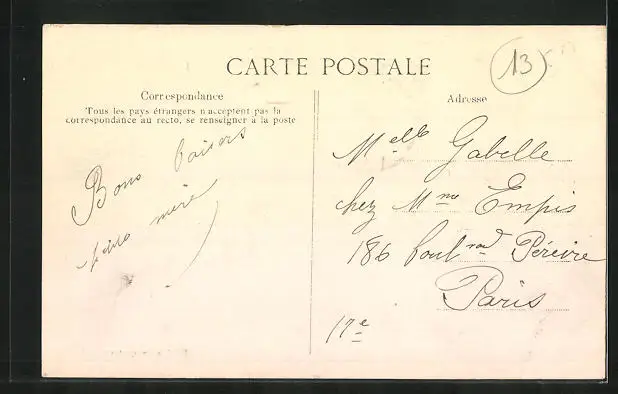 CARTE POSTALE
13
Correspondance
Tous les pays étrangers n'acceptent pas la
correspondance au recto, se renseigner à la poste
Bons baisers
mère
Adresse
Melle Gabelle
chez Mme Empis
186 boulvard Péreire
Paris
17e